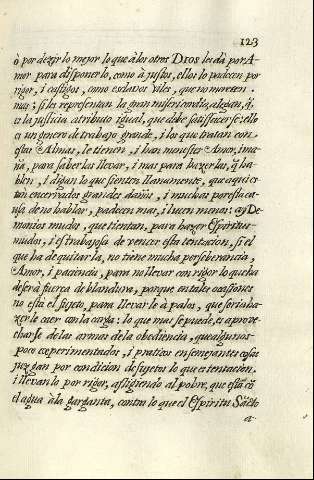 123
ò por dezir lo mejor lo que à los otros DIOS les dà por A-
mor para disponerlo, como à justos, ellos lo padecen por
rigor, i castigos, como esclavos viles, que no mereçen
mas; si les representan la gran misericordia, alegan, q̃
es la justicia atributo igual, que debe satisfacerse: ello
es un genero de trabajo grande, i los que tratan con
estas Almas, le tienen, i han menester Amor, i ma-
ña, para saberlas llevar, i mas para hazerlas, q̃ ha-
blen, i digan lo que sienten llanamente, que aqui es-
tàn encerrados grandes daños, i muchas por esta ca-
usa, de no hablar, padecen mas, i lucen menos: ay De-
monios mudos, que tientan, para hazer Espiritus
mudos, i es trabajosa de vencer esta tentacion, si el
que ha de quitarla, no tiene mucha perseberencia,
Amor, i paciencia, para no llevar con rigor lo que ha
de ser à fuerça de blandura, porque en tales ocasiones
no està el sujeto, para llevarle à palos, que serìa ha-
zerle caer con la carga: lo que mas se puede, es aprove-
charse de las armas de la obediencia, que algunos
poco experimentados, i praticos en semejantes cosas
juzgan por condicion de sujetos lo que es tentacion.
i llevanlo por rigor, afligiendo al pobre, que està cõ
el agua à la garganta, contra lo que el Espiritu Sãcto
a-